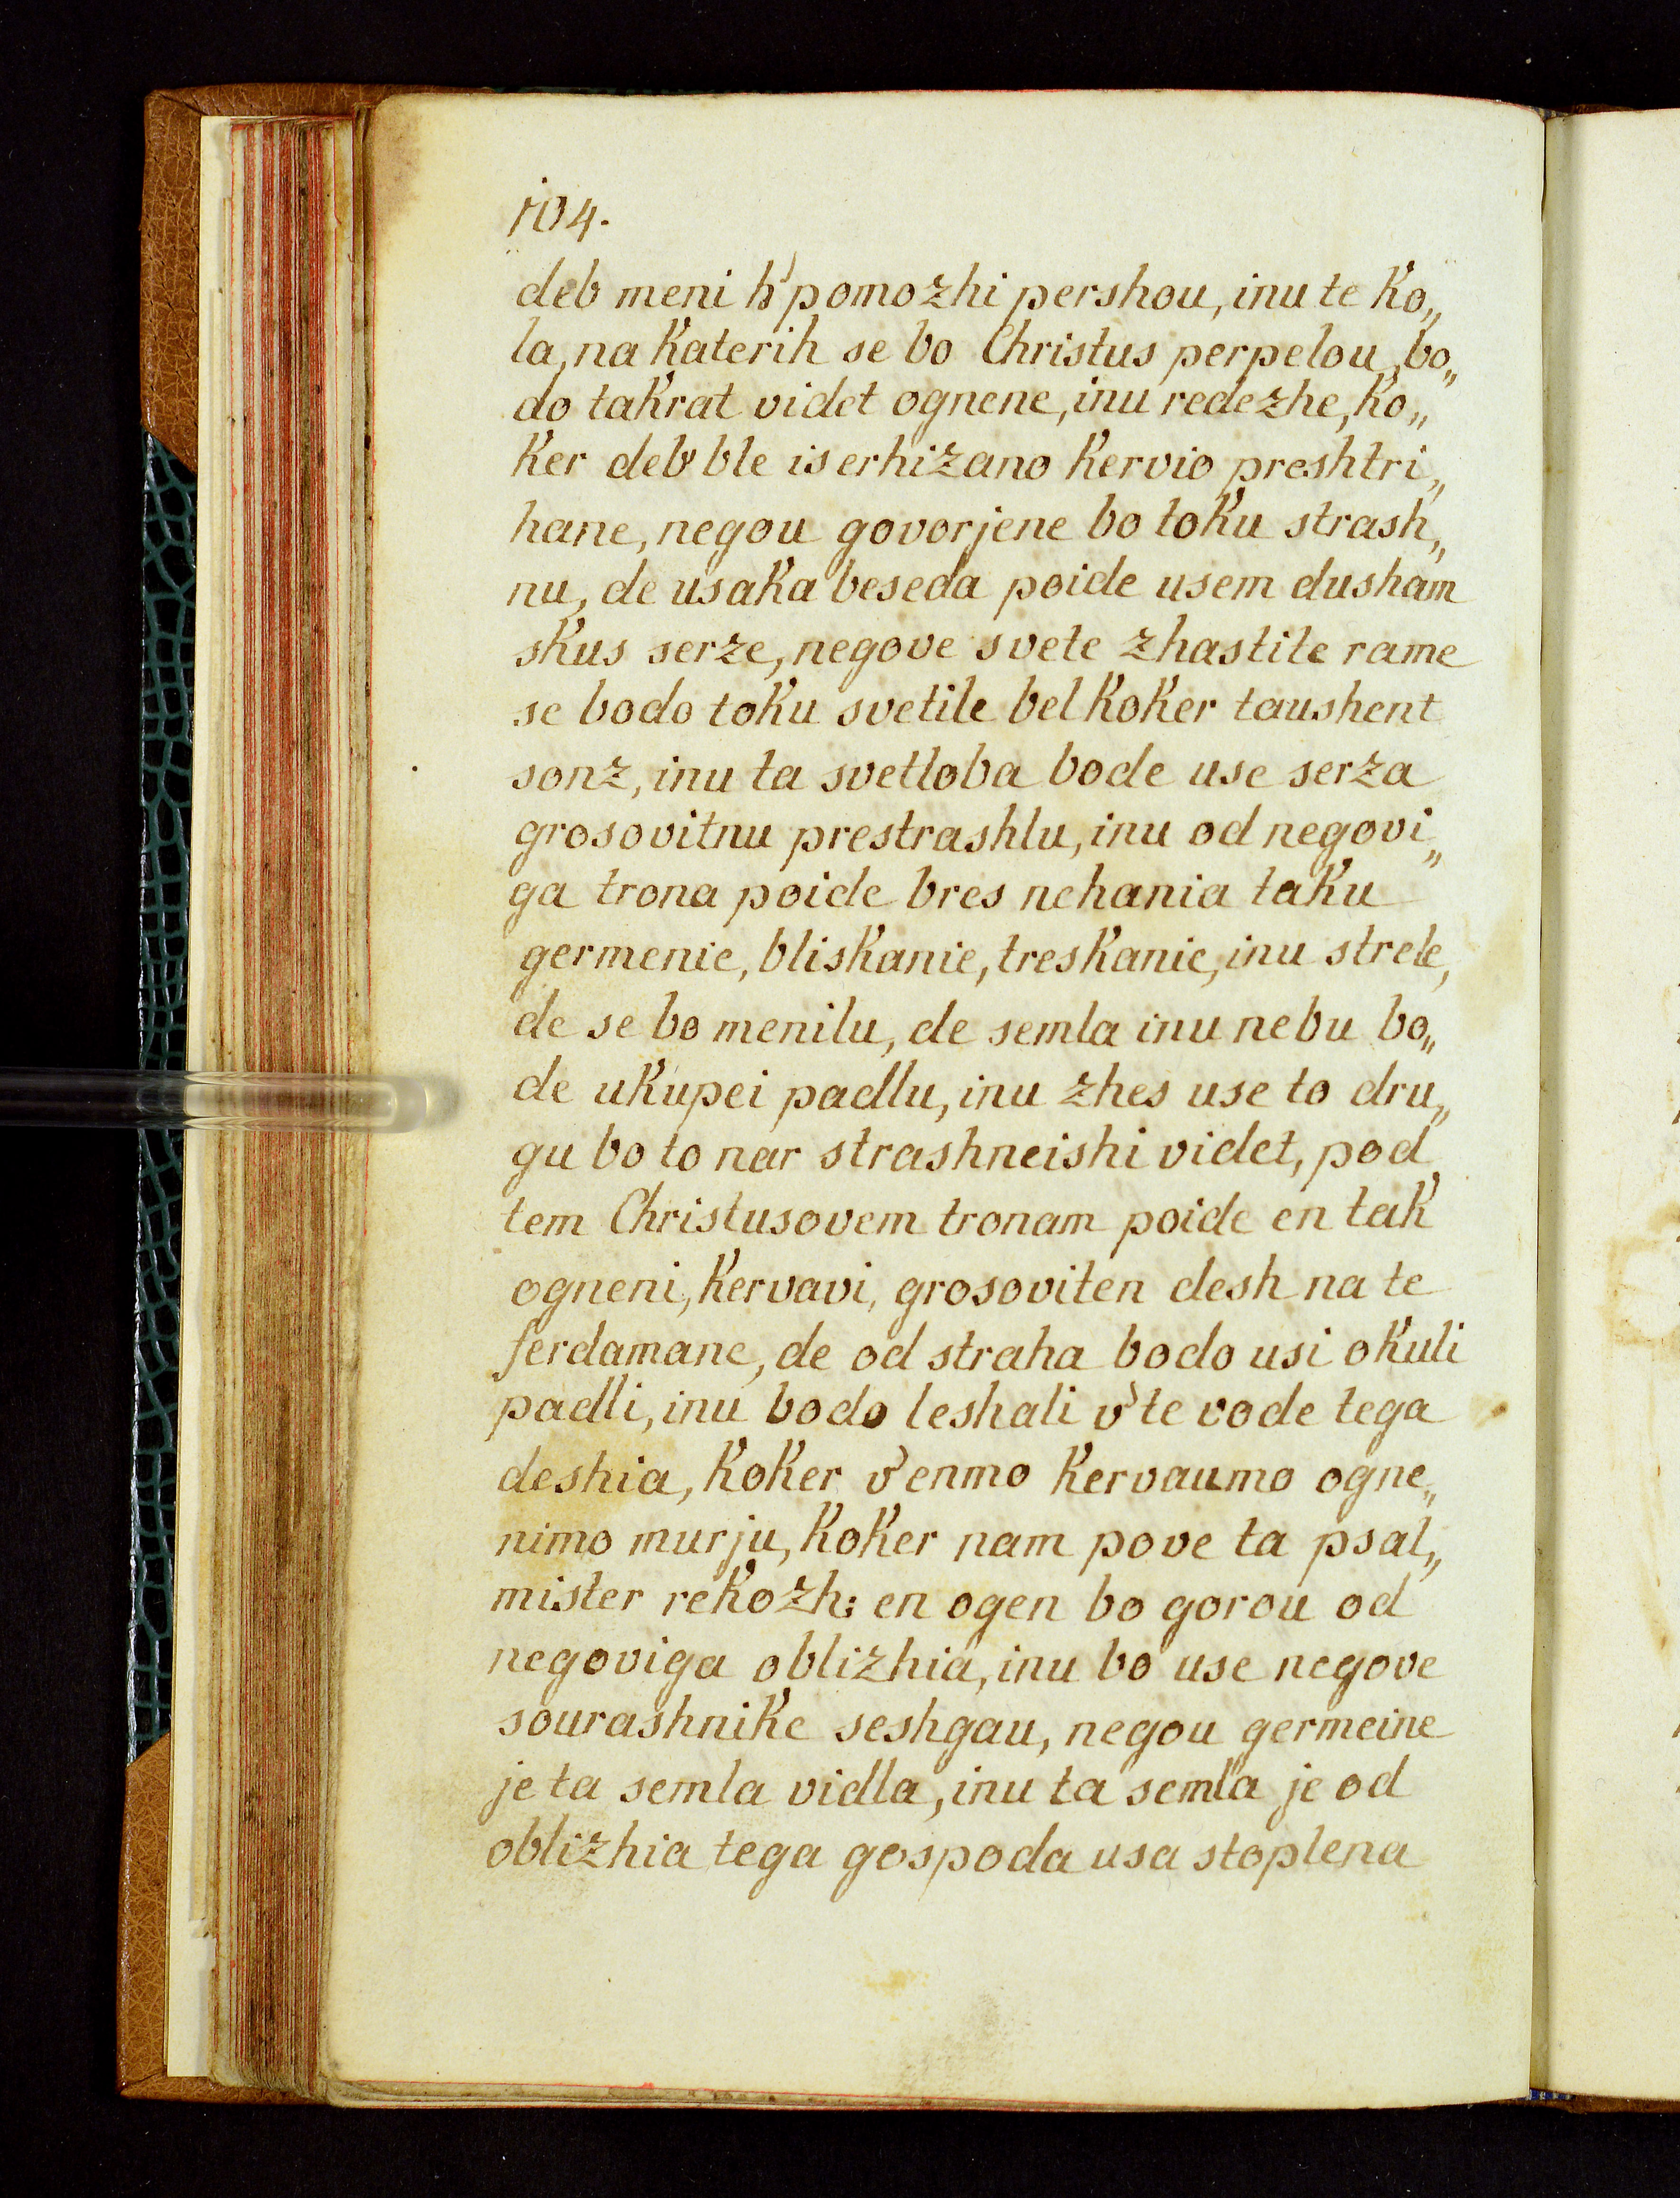 104.
deb meni h' pomozhi pershou, inu te ko„
la, na katerih se bo Christus perpelou, bo„
do takrat videt ognene, inu redezhe, ko„
ker deb ble is erhizano kervio preshtri„
hane, negou govorjene bo toku strash„
nu, de usaka beseda poide usem dusham
skus serze, negove svete zhastite rame
se bodo toku svetile bel koker taushent
sonz, inu ta svetloba bode use serza
grosovitnu prestrashlu, inu od negovi„
ga trona poide bres nehania taku
germenie, bliskanie, treskanie, inu strele,
de se bo menilu, de semla inu nebu bo„
de ukupei padlu, inu zhes use to dru„
gu bo to nar strashneishi videt, pod
tem Christusovem tronam poide en tak
ogneni, kervavi, grosoviten desh na te
ferdamane, de od straha bodo usi okuli
padli, inu bodo leshali v' te vode tega
deshia, koker v' enmo kervaumo ogne„
nimo murju, koker nam pove ta psal„
mister rekozh: en ogen bo gorou od
negoviga oblizhia, inu bo use negove
sourashnike seshgau, negou germeine
je ta semla vidla, inu ta semla je od
oblizhia tega gospoda usa stoplena